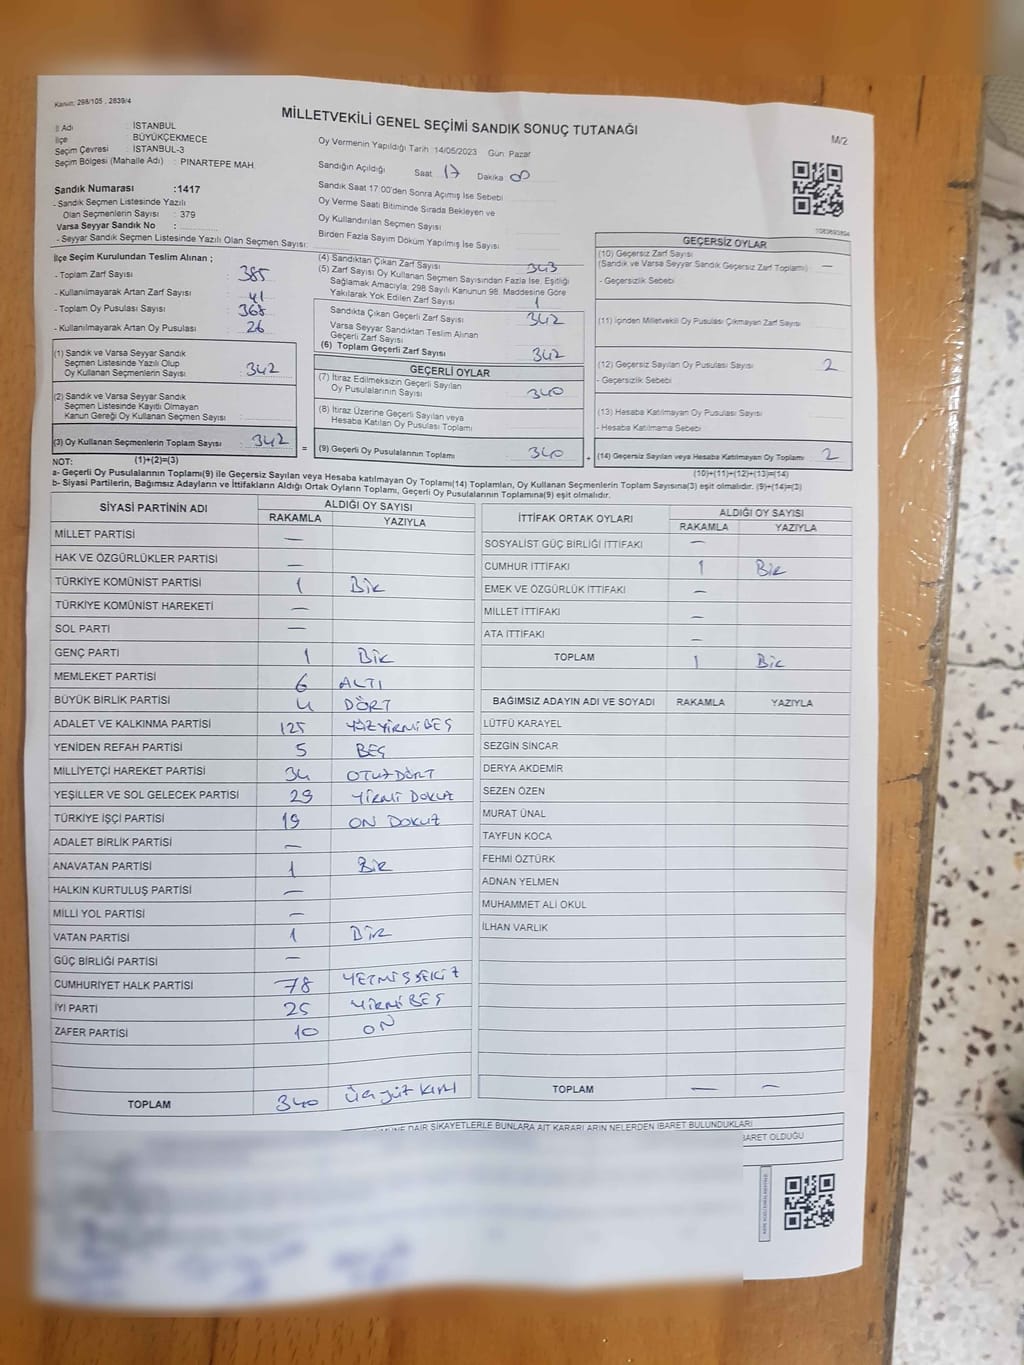 Kanun: 298/105 , 2839/4
MİLLETVEKİLİ GENEL SEÇİMİ SANDIK SONUÇ TUTANAĞI
M/2
İl Adı : İSTANBUL
İlçe : BÜYÜKÇEKMECE
Seçim Çevresi : İSTANBUL-3
Seçim Bölgesi (Mahalle Adı) : PINARTEPE MAH.
Sandık Numarası :1417
- Sandık Seçmen Listesinde Yazılı
Olan Seçmenlerin Sayısı : 379
Varsa Seyyar Sandık No :
- Seyyar Sandık Seçmen Listesinde Yazılı Olan Seçmen Sayısı:
Oy Vermenin Yapıldığı Tarih :14/05/2023 Gün: Pazar
Sandığın Açıldığı Saat 17 Dakika
Sandık Saat 17:00'den Sonra Açımış İse Sebebi
Oy Verme Saati Bitiminde Sırada Bekleyen ve
Oy Kullandırılan Seçmen Sayısı
Birden Fazla Sayım Döküm Yapılmış İse Sayısı
İlçe Seçim Kurulundan Teslim Alınan ;
- Toplam Zarf Sayısı : 385
- Kullanılmayarak Artan Zarf Sayısı : 41
- Toplam Oy Pusulası Sayısı : 368
- Kullanılmayarak Artan Oy Pusulası : 26
(1) Sandık ve Varsa Seyyar Sandık
Seçmen Listesinde Yazılı Olup
Oy Kullanan Seçmenlerin Sayısı : 342
(2) Sandık ve Varsa Seyyar Sandık
Seçmen Listesinde Kayıtlı Olmayan
Kanun Gereği Oy Kullanan Seçmen Sayısı :
(3) Oy Kullanan Seçmenlerin Toplam Sayısı : 342
(4) Sandıktan Çıkan Zarf Sayısı 343
(5) Zarf Sayısı Oy Kullanan Seçmen Sayısından Fazla İse, Eşitliği
Sağlamak Amacıyla; 298 Sayılı Kanunun 98. Maddesine Göre
Yakılarak Yok Edilen Zarf Sayısı 1
Sandıkta Çıkan Geçerli Zarf Sayısı 342
Varsa Seyyar Sandıktan Teslim Alınan
Geçerli Zarf Sayısı
(6) Toplam Geçerli Zarf Sayısı 342
GEÇERLİ OYLAR
(7) İtiraz Edilmeksizin Geçerli Sayılan
Oy Pusulalarının Sayısı 340
(8) İtiraz Üzerine Geçerli Sayılan veya
Hesaba Katılan Oy Pusulası Toplamı
= (9) Geçerli Oy Pusulalarının Toplamı 340
GEÇERSİZ OYLAR
(10) Geçersiz Zarf Sayısı
(Sandık ve Varsa Seyyar Sandık Geçersiz Zarf Toplamı) —
- Geçersizlik Sebebi
(11) İçinden Milletvekili Oy Pusulası Çıkmayan Zarf Sayısı
(12) Geçersiz Sayılan Oy Pusulası Sayısı 2
- Geçersizlik Sebebi
(13) Hesaba Katılmayan Oy Pusulası Sayısı
- Hesaba Katılmama Sebebi
+ (14) Geçersiz Sayılan veya Hesaba Katılmayan Oy Toplamı 2
NOT: (1)+(2)=(3) (10)+(11)+(12)+(13)=(14)
a- Geçerli Oy Pusulalarının Toplamı(9) ile Geçersiz Sayılan veya Hesaba katılmayan Oy Toplamı(14) Toplamları, Oy Kullanan Seçmenlerin Toplam Sayısına(3) eşit olmalıdır. (9)+(14)=(3)
b- Siyasi Partilerin, Bağımsız Adayların ve İttifakların Aldığı Ortak Oyların Toplamı, Geçerli Oy Pusulalarının Toplamına(9) eşit olmalıdır.
SİYASİ PARTİNİN ADI ALDIĞI OY SAYISI
RAKAMLA YAZIYLA
MİLLET PARTİSİ —
HAK VE ÖZGÜRLÜKLER PARTİSİ —
TÜRKİYE KOMÜNİST PARTİSİ 1 Bir
TÜRKİYE KOMÜNİST HAREKETİ —
SOL PARTİ —
GENÇ PARTİ 1 Bir
MEMLEKET PARTİSİ 6 ALTI
BÜYÜK BİRLİK PARTİSİ 4 DÖRT
ADALET VE KALKINMA PARTİSİ 125 YÜZYİRMİBEŞ
YENİDEN REFAH PARTİSİ 5 BEŞ
MİLLİYETÇİ HAREKET PARTİSİ 34 OTUZDÖRT
YEŞİLLER VE SOL GELECEK PARTİSİ 29 YİRMİ DOKUZ
TÜRKİYE İŞÇİ PARTİSİ 19 ON DOKUZ
ADALET BİRLİK PARTİSİ —
ANAVATAN PARTİSİ 1 Bir
HALKIN KURTULUŞ PARTİSİ —
MİLLİ YOL PARTİSİ —
VATAN PARTİSİ 1 Bir
GÜÇ BİRLİĞİ PARTİSİ —
CUMHURİYET HALK PARTİSİ 78 YETMİŞSEKİZ
İYİ PARTİ 25 YİRMİ BEŞ
ZAFER PARTİSİ 10 ON
TOPLAM 340 üçyüz kırk
İTTİFAK ORTAK OYLARI ALDIĞI OY SAYISI
RAKAMLA YAZIYLA
SOSYALİST GÜÇ BİRLİĞİ İTTİFAKI —
CUMHUR İTTİFAKI 1 Bir
EMEK VE ÖZGÜRLÜK İTTİFAKI —
MİLLET İTTİFAKI —
ATA İTTİFAKI —
TOPLAM 1 Bir
BAĞIMSIZ ADAYIN ADI VE SOYADI RAKAMLA YAZIYLA
LÜTFÜ KARAYEL
SEZGİN SİNCAR
DERYA AKDEMİR
SEZEN ÖZEN
MURAT ÜNAL
TAYFUN KOCA
FEHMİ ÖZTÜRK
ADNAN YELMEN
MUHAMMET ALİ OKUL
İLHAN VARLIK
TOPLAM — —
DAİR ŞİKAYETLERLE BUNLARA AİT KARARLARIN NELERDEN İBARET BULUNDUKLARI
İBARET OLDUĞU